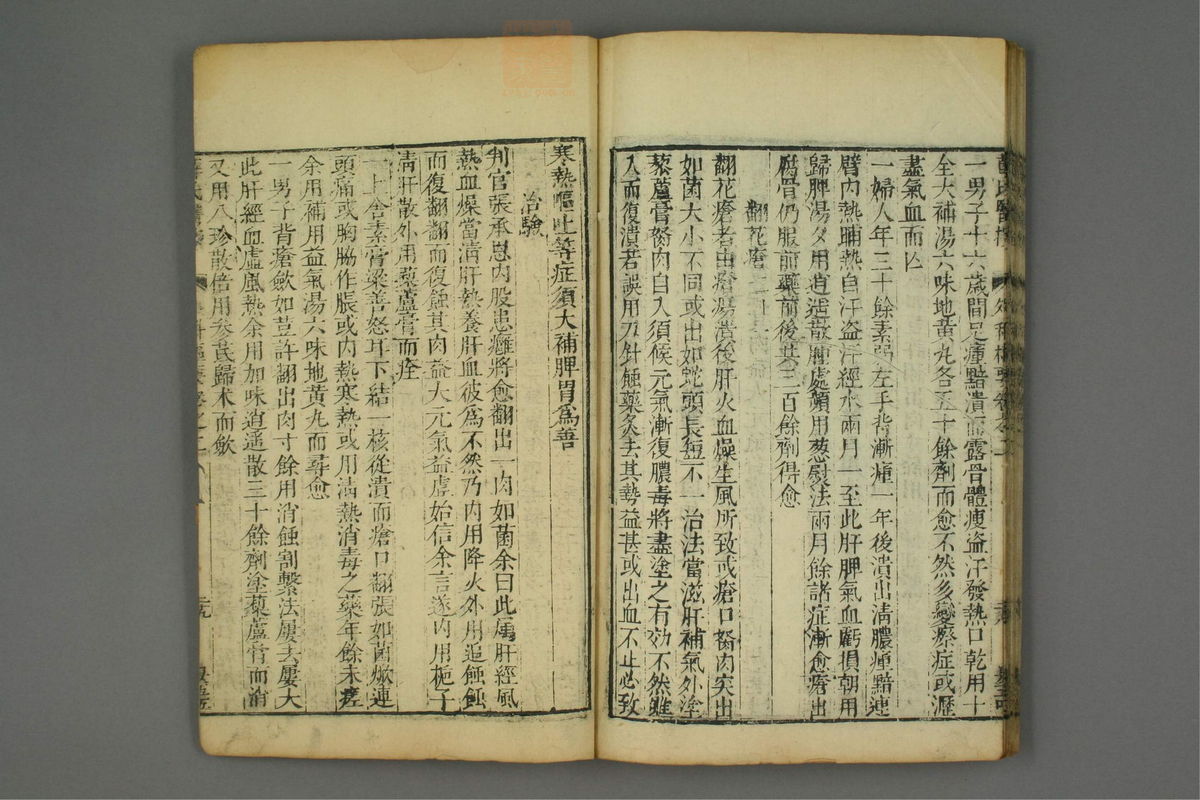 一男子十六歲間足瘇黯潰而露骨體瘦盗汗發熱口乾用十
全大補湯六味地黄丸各五十餘劑而愈不然多變瘵症或瀝
盡氣血而亡
一婦人年三十餘素弱左手背漸瘇一年後潰出清膿瘇黯連
臂内熱晡熱自汗盗汗經水兩月一至此肝脾氣血虧損朝用
歸脾湯夕用逍遥散腫處頻用葱熨法兩月餘諸症漸愈瘡出
腐骨仍服前藥前後共三百餘劑得愈
翻花瘡
翻花瘡者由瘡瘍潰後肝火血燥生風所致或瘡口努肉突出
如菌大小不同或出如蛇頭長短不一治法當滋肝補氣外塗
藜蘆膏努肉自入須候元氣漸復膿毒將盡塗之有効不然雖
入而復潰若誤用刀針蝕藥灸去其勢益甚或出血不止必致
寒熱嘔吐等症須大補脾胃爲善
治驗
判官張承恩内股患癰將愈翻出一肉如菌余曰此属肝經風
熱血燥當清肝熱養肝血彼爲不然乃内用降火外用追蝕蝕
而復翻翻而復蝕其肉益大元氣益虚始信余言遂内用梔子
清肝散外用藜蘆膏而痊
一上舍素膏粱善怒耳下結一核從潰而瘡口翻張如菌焮連
頭痛或胸脇作脹或内熱寒熱或用清熱消毒之藥年餘未瘥
余用補用益氣湯六味地黄丸而尋愈
一男子背瘡斂如豆許翻出肉寸餘用消蝕割繫法屢去屢大
此肝經血虚風熱余用加味逍遥散三十餘劑塗藜蘆膏而消
又用八珍散倍用參芪歸术而斂